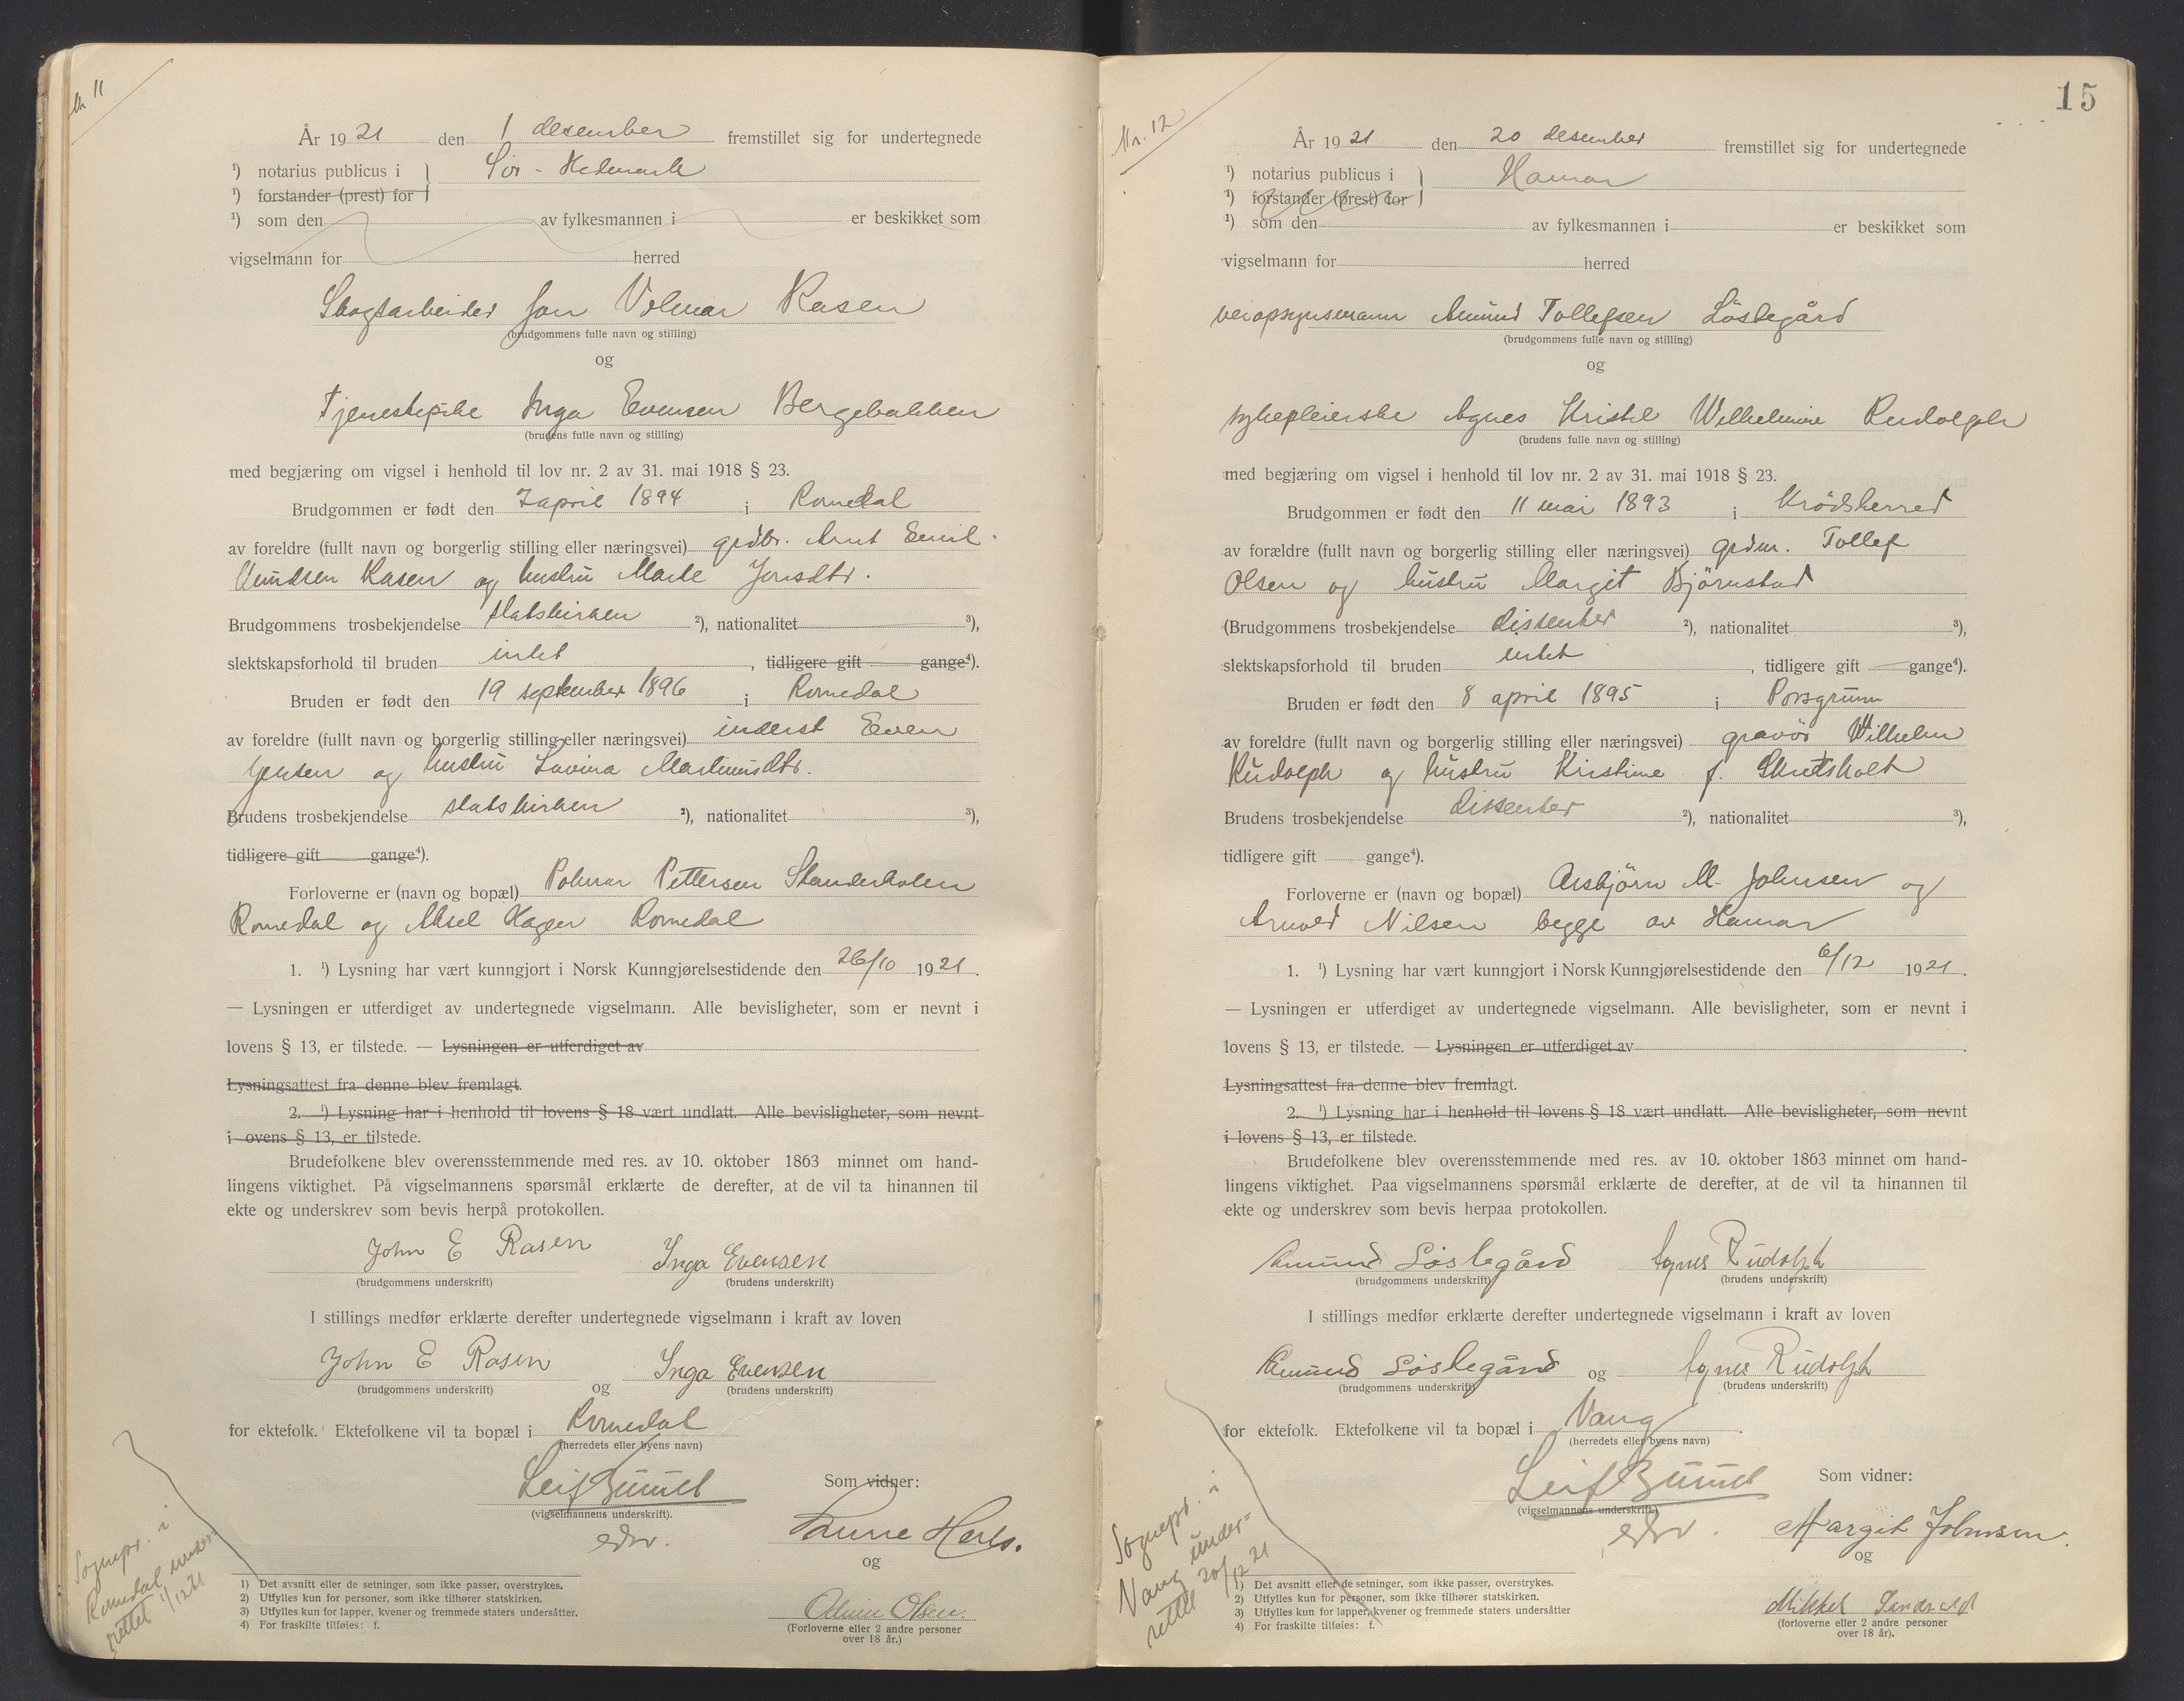 Nr 11
År 1921 den 1 desember fremstillet sig for undertegnede
¹) notarius publicus i } Sør-Hedmark
¹) forstander (prest) for
¹) som den av fylkesmannen i er beskikket som
vigselmann for herred
Skogsarbeider Jon Volmar Rasen
(brudgommens fulle navn og stilling)
og
Tjenestepike Inga Evensen Bergebakken
(brudens fulle navn og stilling)
med begjæring om vigsel i henhold til lov nr. 2 av 31. mai 1918 § 23.
Brudgommen er født den 7 april 1894 i Romedal
av foreldre (fullt navn og borgerlig stilling eller næringsvei) grdbr. Arnt Emil
Knudsen Rasen og hustru Marte Jonsdtr.
Brudgommens trosbekjendelse statskirken ²), nationalitet ³),
slektskapsforhold til bruden intet , tidligere gift gange⁴).
Bruden er født den 19 september 1896 i Romedal
av foreldre (fullt navn og borgerlig stilling eller næringsvei) inderst Even
Jensen og hustru Lovina Martinusdtr.
Brudens trosbekjendelse statskirken ²), nationalitet ³),
tidligere gift gange⁴).
Forloverne er (navn og bopæl) Polmar Pettersen
Romedal og Aksel Hagen Romedal
1. ¹) Lysning har vært kunngjort i Norsk Kunngjørelsestidende den 26/10 1921.
— Lysningen er utferdiget av undertegnede vigselmann. Alle bevisligheter, som er nevnt i
lovens § 13, er tilstede. — Lysningen er utferdiget av
Lysningsattest fra denne blev fremlagt.
2. ¹) Lysning har i henhold til lovens § 18 vært undlatt. Alle bevisligheter, som nevnt
i ovens § 13, er tilstede.
Brudefolkene blev overensstemmende med res. av 10. oktober 1863 minnet om hand-
lingens viktighet. På vigselmannens spørsmål erklærte de derefter, at de vil ta hinannen til
ekte og underskrev som bevis herpå protokollen.
John E Rasen Inga Evensen
(brudgommens underskrift) (brudens underskrift)
I stillings medfør erklærte derefter undertegnede vigselmann i kraft av loven
John E Rasen og Inga Evensen
(brudgommens underskrift) (brudens underskrift)
for ektefolk. Ektefolkene vil ta bopæl i Romedal
(herredets eller byens navn)
Leif Buund Som vidner:
(vigselmannens underskrift).
edsv.
og
Olsen
(Forloverne eller 2 andre personer
over 18 år.)
Sognepr. i
Romedal under-
rettet 1/12 21
1) Det avsnitt eller de setninger, som ikke passer, overstrykes.
2) Utfylles kun for personer, som ikke tilhører statskirken.
3) Utfylles kun for lapper, kvener og fremmede staters undersåtter.
4) For fraskilte tilføies: f.
15
Nr. 12
År 1921 den 20 desember fremstillet sig for undertegnede
¹) notarius publicus i } Hamar
¹) forstander (prest) for
¹) som den av fylkesmannen i er beskikket som
vigselmann for herred
veiopsynsmann Amund Tollefsen Löslegård
(brudgommens fulle navn og stilling)
og
sykepleierske Agnes Kristel Wilhelmine Rudolph
(brudens fulle navn og stilling)
med begjæring om vigsel i henhold til lov nr. 2 av 31. mai 1918 § 23.
Brudgommen er født den 11 mai 1893 i Krödsherred
av forældre (fullt navn og borgerlig stilling eller næringsvei) grdm. Tollef
Olsen og hustru Margit Björnstad
(Brudgommens trosbekjendelse dissenter ²), nationalitet ³),
slektskapsforhold til bruden intet , tidligere gift gange⁴).
Bruden er født den 8 april 1895 i Porsgrunn
av foreldre (fullt navn og borgerlig stilling eller næringsvei) gravör Wilhelm
Rudolph og hustru Kristine f.
Brudens trosbekjendelse dissenter ²), nationalitet ³),
tidligere gift gange⁴).
Forloverne er (navn og bopæl) Asbjörn M. Johnsen og
Arnold Nilsen begge av Hamar
1. ¹) Lysning har vært kunngjort i Norsk Kunngjørelsestidende den 6/12 1921.
— Lysningen er utferdiget av undertegnede vigselmann. Alle bevisligheter, som er nevnt i
lovens § 13, er tilstede. — Lysningen er utferdiget av
Lysningsattest fra denne blev fremlagt.
2. ¹) Lysning har i henhold til lovens § 18 vært undlatt. Alle bevisligheter, som nevnt
i lovens § 13, er tilstede.
Brudefolkene blev overensstemmende med res. av 10. oktober 1863 minnet om hand-
lingens viktighet. Paa vigselmannens spørsmål erklærte de derefter, at de vil ta hinannen til
ekte og underskrev som bevis herpaa protokollen.
Amund Löslegård Agnes Rudolph
(brudgommens underskrift) (brudens underskrift)
I stillings medfør erklærte derefter undertegnede vigselmann i kraft av loven
Amund Löslegård og Agnes Rudolph
(brudgommens underskrift) (brudens underskrift)
for ektefolk. Ektefolkene vil ta bopæl i Vang
(herredets eller byens navn)
Leif Buund Som vidner:
(vigselmannens underskrift)
edsv. Margit Johnsen.
og
Mikkel
(forloverne eller 2 andre personer
over 18 år).
Sognepr. i
Vang under-
rettet 20/12 21
1) Det avsnitt eller de setninger, som ikke passer, overstrykes.
2) Utfylles kun for personer, som ikke tilhører statskirken.
3) Utfylles kun for lapper, kvener og fremmede staters undersåtter
4) For fraskilte tilføies: f.